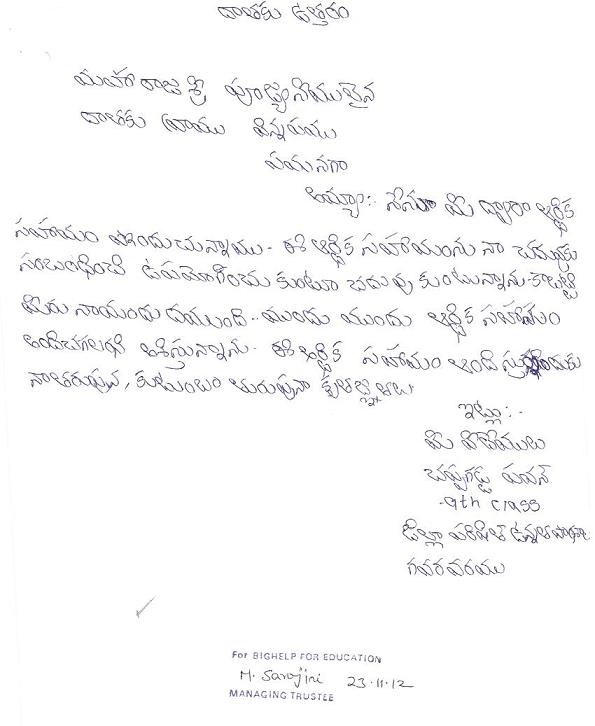 దాతకు ఉత్తరం
మహారాజశ్రీ పూజ్యనీయులైన
దాతకు వ్రాయు విన్నపము
ఏమనగా
అయ్యా:- నేను మీ ద్వారా ఆర్థిక
సహాయం పొందుచున్నాము - ఈ ఆర్థిక సహాయంను నా చదువుకు
సంబంధించి ఉపయోగించు కుంటూ చదువు కుంటున్నాను. కాబట్టి
మీరు నాయందు దయుంచి.. ముందు ముందు ఆర్థిక సహాయం
అందించగలరని ఆశిస్తున్నాను - ఈ ఆర్థిక సహాయం అందిస్తున్నందుకు
నా తరుపున, కుటుంబం తరుపునా కృతజ్ఞతలు
ఇట్లు:-
మీ విధేయులు
పవన్
9th class
జిల్లా పరిషత్ ఉన్నత పాఠశాల
గవరవరము
For BIGHELP FOR EDUCATION
M. Sarojini 23.11.12
MANAGING TRUSTEE